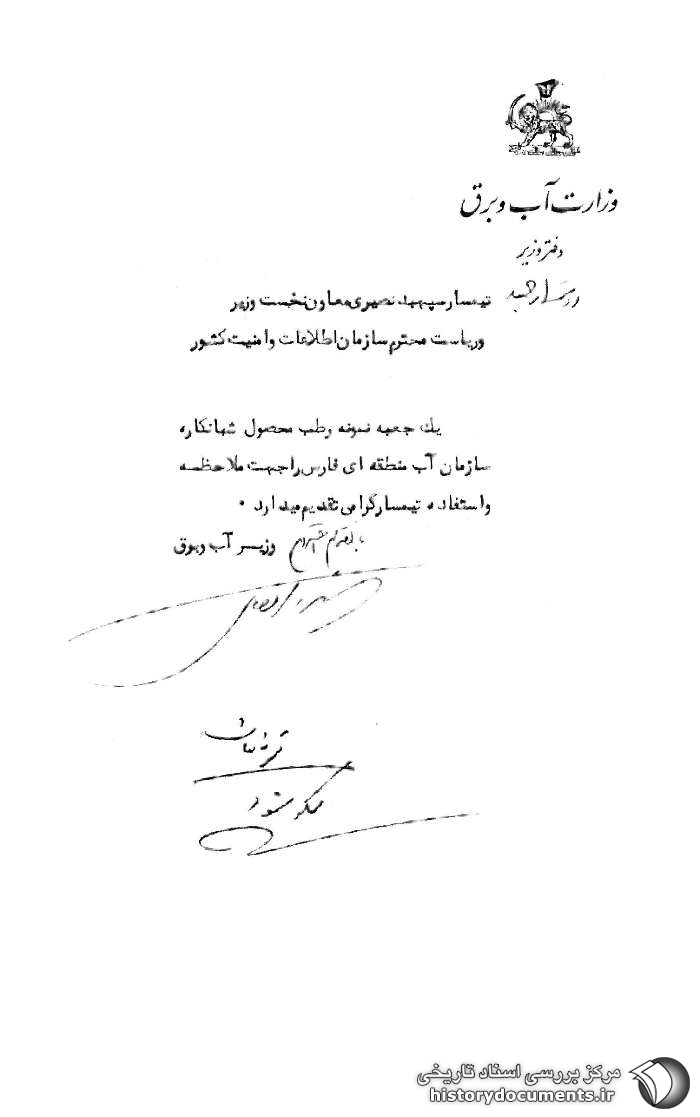 وزارت آب و برق
دفتر وزیر
تیمسار سپهبد نصیری معاون نخست وزیر
و ریاست محترم سازمان اطلاعات و امنیت کشور
یک جعبه نمونه رطب محصول شبانکاره
سازمان آب منطقه ای فارس را جهت ملاحظه
و استفاده تیمسار گرامی تقدیم میدارد .
با تقدیم احترام وزیر آب و برق
تشکر شود
مرکز بررسی اسناد تاریخی
historydocuments.ir